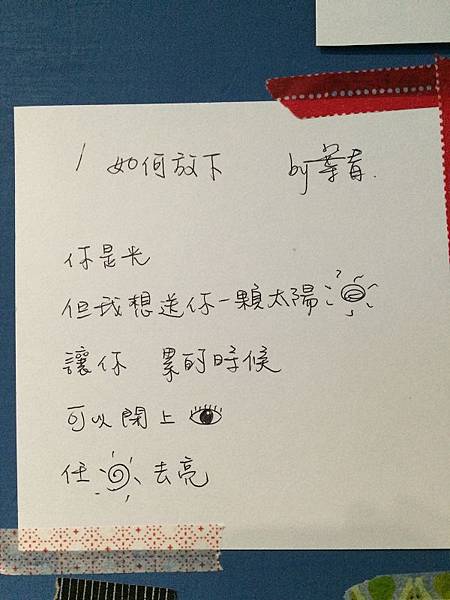 / 如何放下 by
你是光
但我想送你一顆太陽
讓你 累的時候
可以閉上
任 去亮